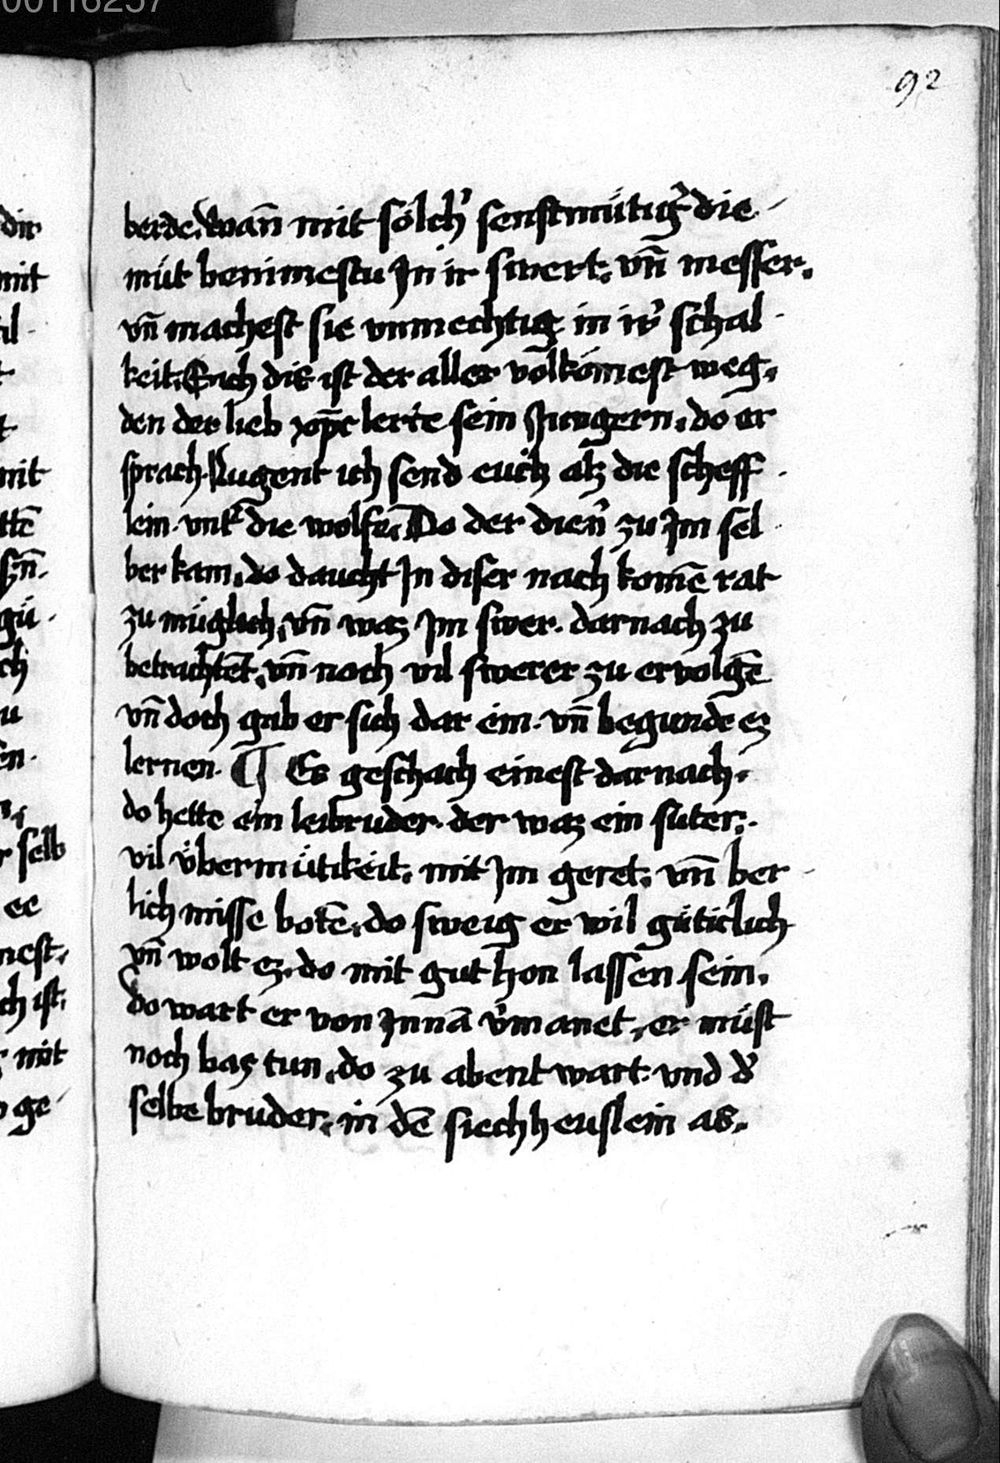 00116257
92
berde. Wan̄ mit sölch' senftmütig' die
müt benimestu Jn ir swert. vn̄ messer.
vn̄ machest sie vnmechtig in ir' schal
keit. Sich dis ist der aller volkomest weg.
den der lieb xp̄c lerte sein Jungern. do er
sprach. Nugent ich send euch alz die scheff
lein. vnt' die wolfe. Do der dien' zu Jm sel
ber kam. do daucht Jn diser nach komē rat
zu müglich. vn̄ waz Jm swer. darnach zu
betrachtēt. vn̄ noch vil swerer zu ervolgē
vn̄ doch gab er sich dar ein. vn̄ begunde ez
lernen. ¶ Es geschach einest darnach.
do hette ein leibruder. der waz ein suter.
vil übermütikeit. mit Jm geret. vn̄ ber
lich misse botē. do sweig er vil güticlich
vn̄ wolt ez. do mit gut hon lassen sein.
do wart er von Jnnā v'manet. er müst
noch bas tun. do zu abent wart. vnd d'
selbe bruder. in dē siechheuslein as.
dir
mit
mit
selb
ee
nest.
ch ist.
mit
ge